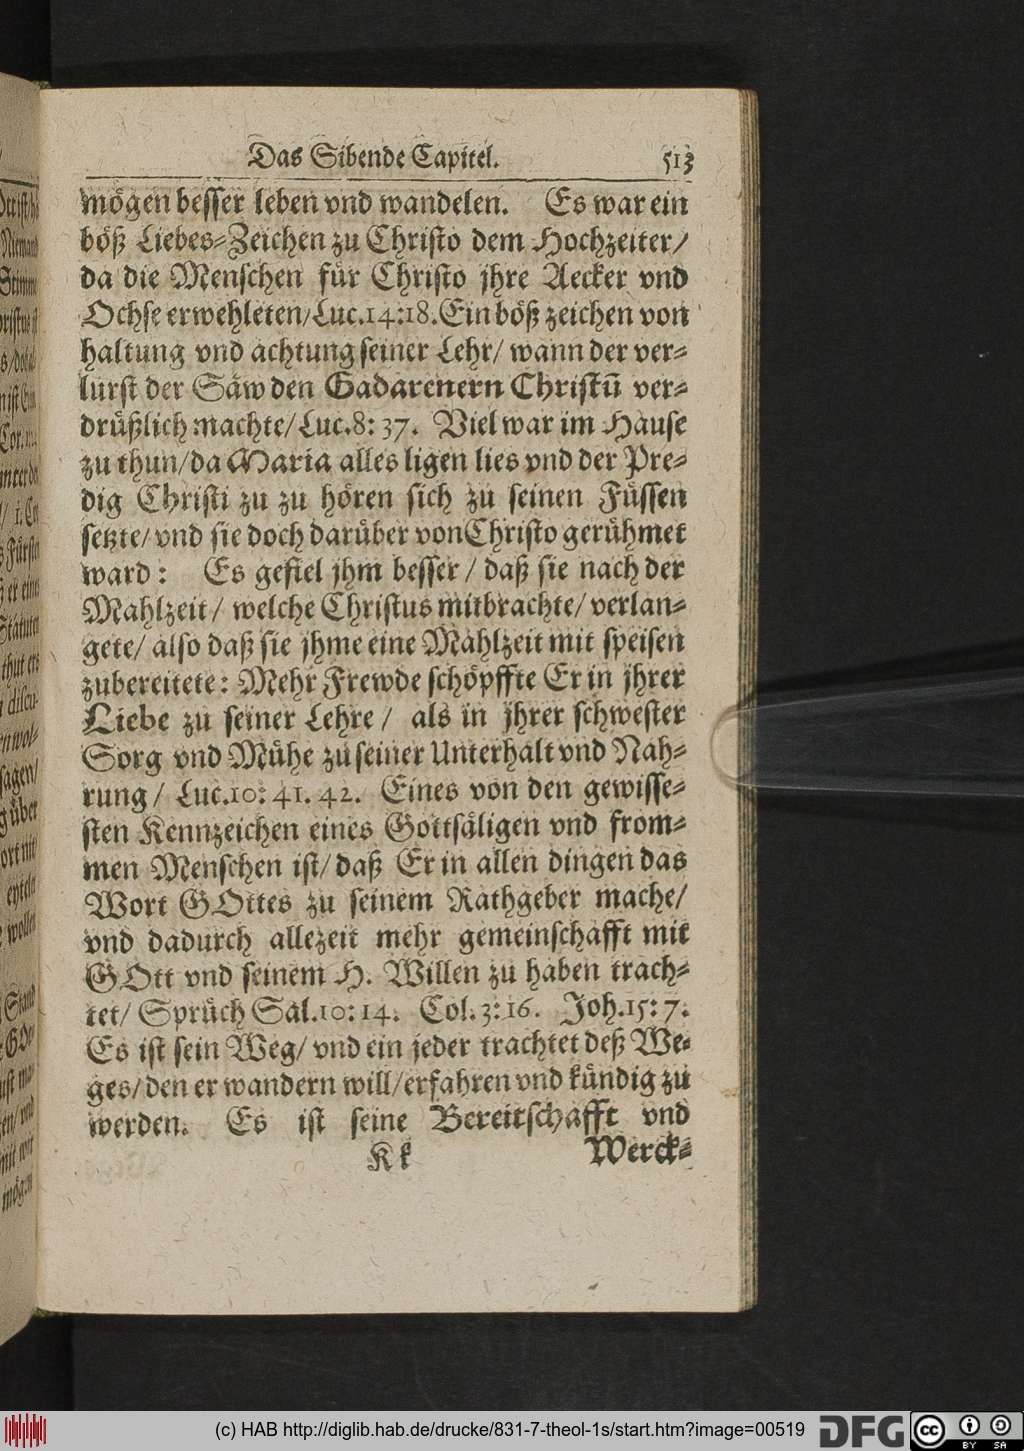 Das Sibende Capitel. 513
mögen besser leben vnd wandelen. Es war ein
böß Liebes-Zeichen zu Christo dem Hochzeiter/
da die Menschen für Christo jhre Aecker vnd
Ochse erwehleten/Luc.14:18.Ein böß zeichen von
haltung vnd achtung seiner Lehr/ wann der ver-
lurst der Säw den Gadarenern Christū ver-
drüßlich machte/Luc.8:37. Viel war im Hause
zu thun/da Maria alles ligen lies vnd der Pre-
dig Christi zu zu hören sich zu seinen Füssen
setzte/vnd sie doch darüber von Christo gerühmet
ward: Es gefiel jhm besser/ daß sie nach der
Mahlzeit/ welche Christus mitbrachte/verlan-
gete/ also daß sie jhme eine Mahlzeit mit speisen
zubereitete: Mehr Frewde schöpffte Er in jhrer
Liebe zu seiner Lehre/ als in jhrer schwester
Sorg vnd Mühe zu seiner Unterhalt vnd Nah-
rung/ Luc.10:41.42. Eines von den gewisse-
sten Kennzeichen eines Gottsäligen vnd from-
men Menschen ist/daß Er in allen dingen das
Wort GOttes zu seinem Rathgeber mache/
vnd dadurch allezeit mehr gemeinschafft mit
GOtt vnd seinem H. Willen zu haben trach-
tet/ Sprüch Sal.10:14. Col.3:16. Joh.15:7.
Es ist sein Weg/ vnd ein jeder trachtet deß We-
ges/den er wandern will/erfahren vnd kündig zu
werden. Es ist seine Bereitschafft vnd
Kk Werck-
(c) HAB http://diglib.hab.de/drucke/831-7-theol-1s/start.htm?image=00519
DFG
cc
BY SA